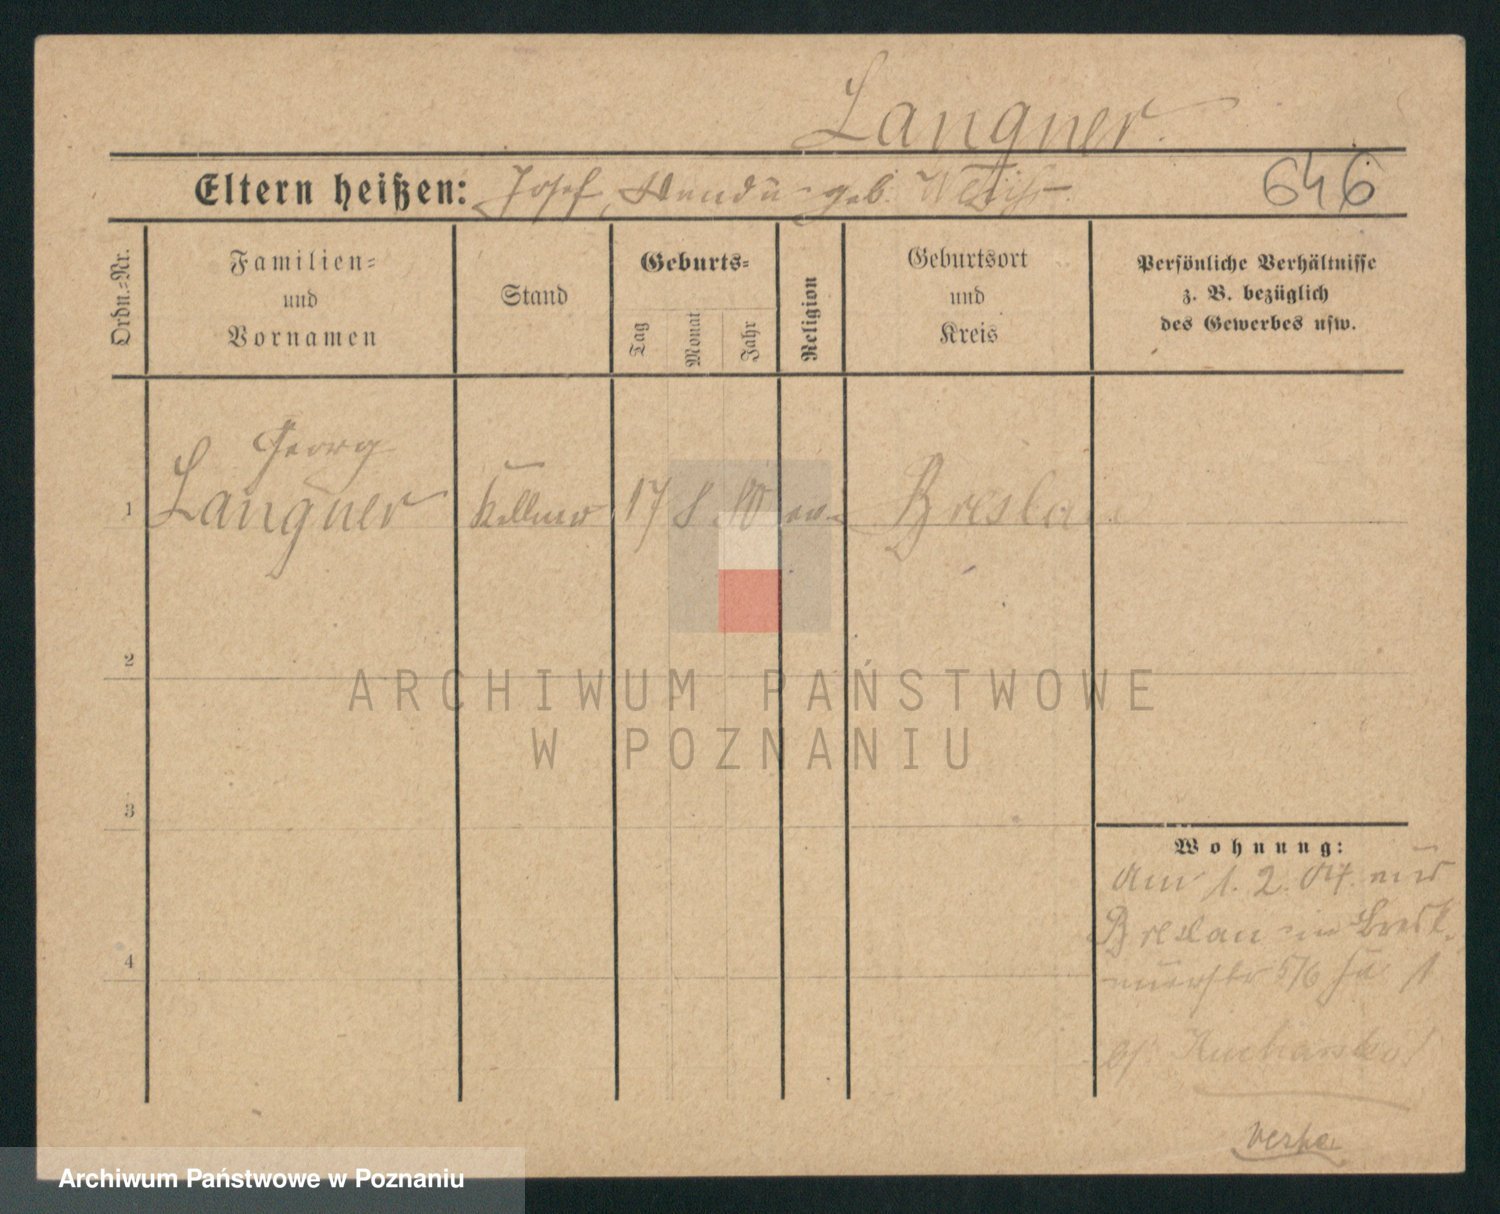 Langner
Eltern heißen: Josef, geb. 646
Ordn.-Nr.
Familien-
und
Vornamen
Stand
Geburts-
Tag
Monat
Jahr
Religion
Geburtsort
und
Kreis
Persönliche Verhältnisse
z. B. bezüglich
des Gewerbes usw.
Georg
1 Langner Kellner 17 8 80 ev. Breslau
2
ARCHIWUM PAŃSTWOWE
W POZNANIU
3
Wohnung:
Am 1. 2. 07. aus
Breslau in
5/6
4
Archiwum Państwowe w Poznaniu